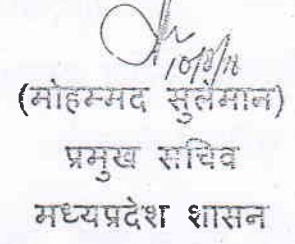 10/8/18
(मोहम्मद सुलेमान)
प्रमुख सचिव
मध्यप्रदेश शासन